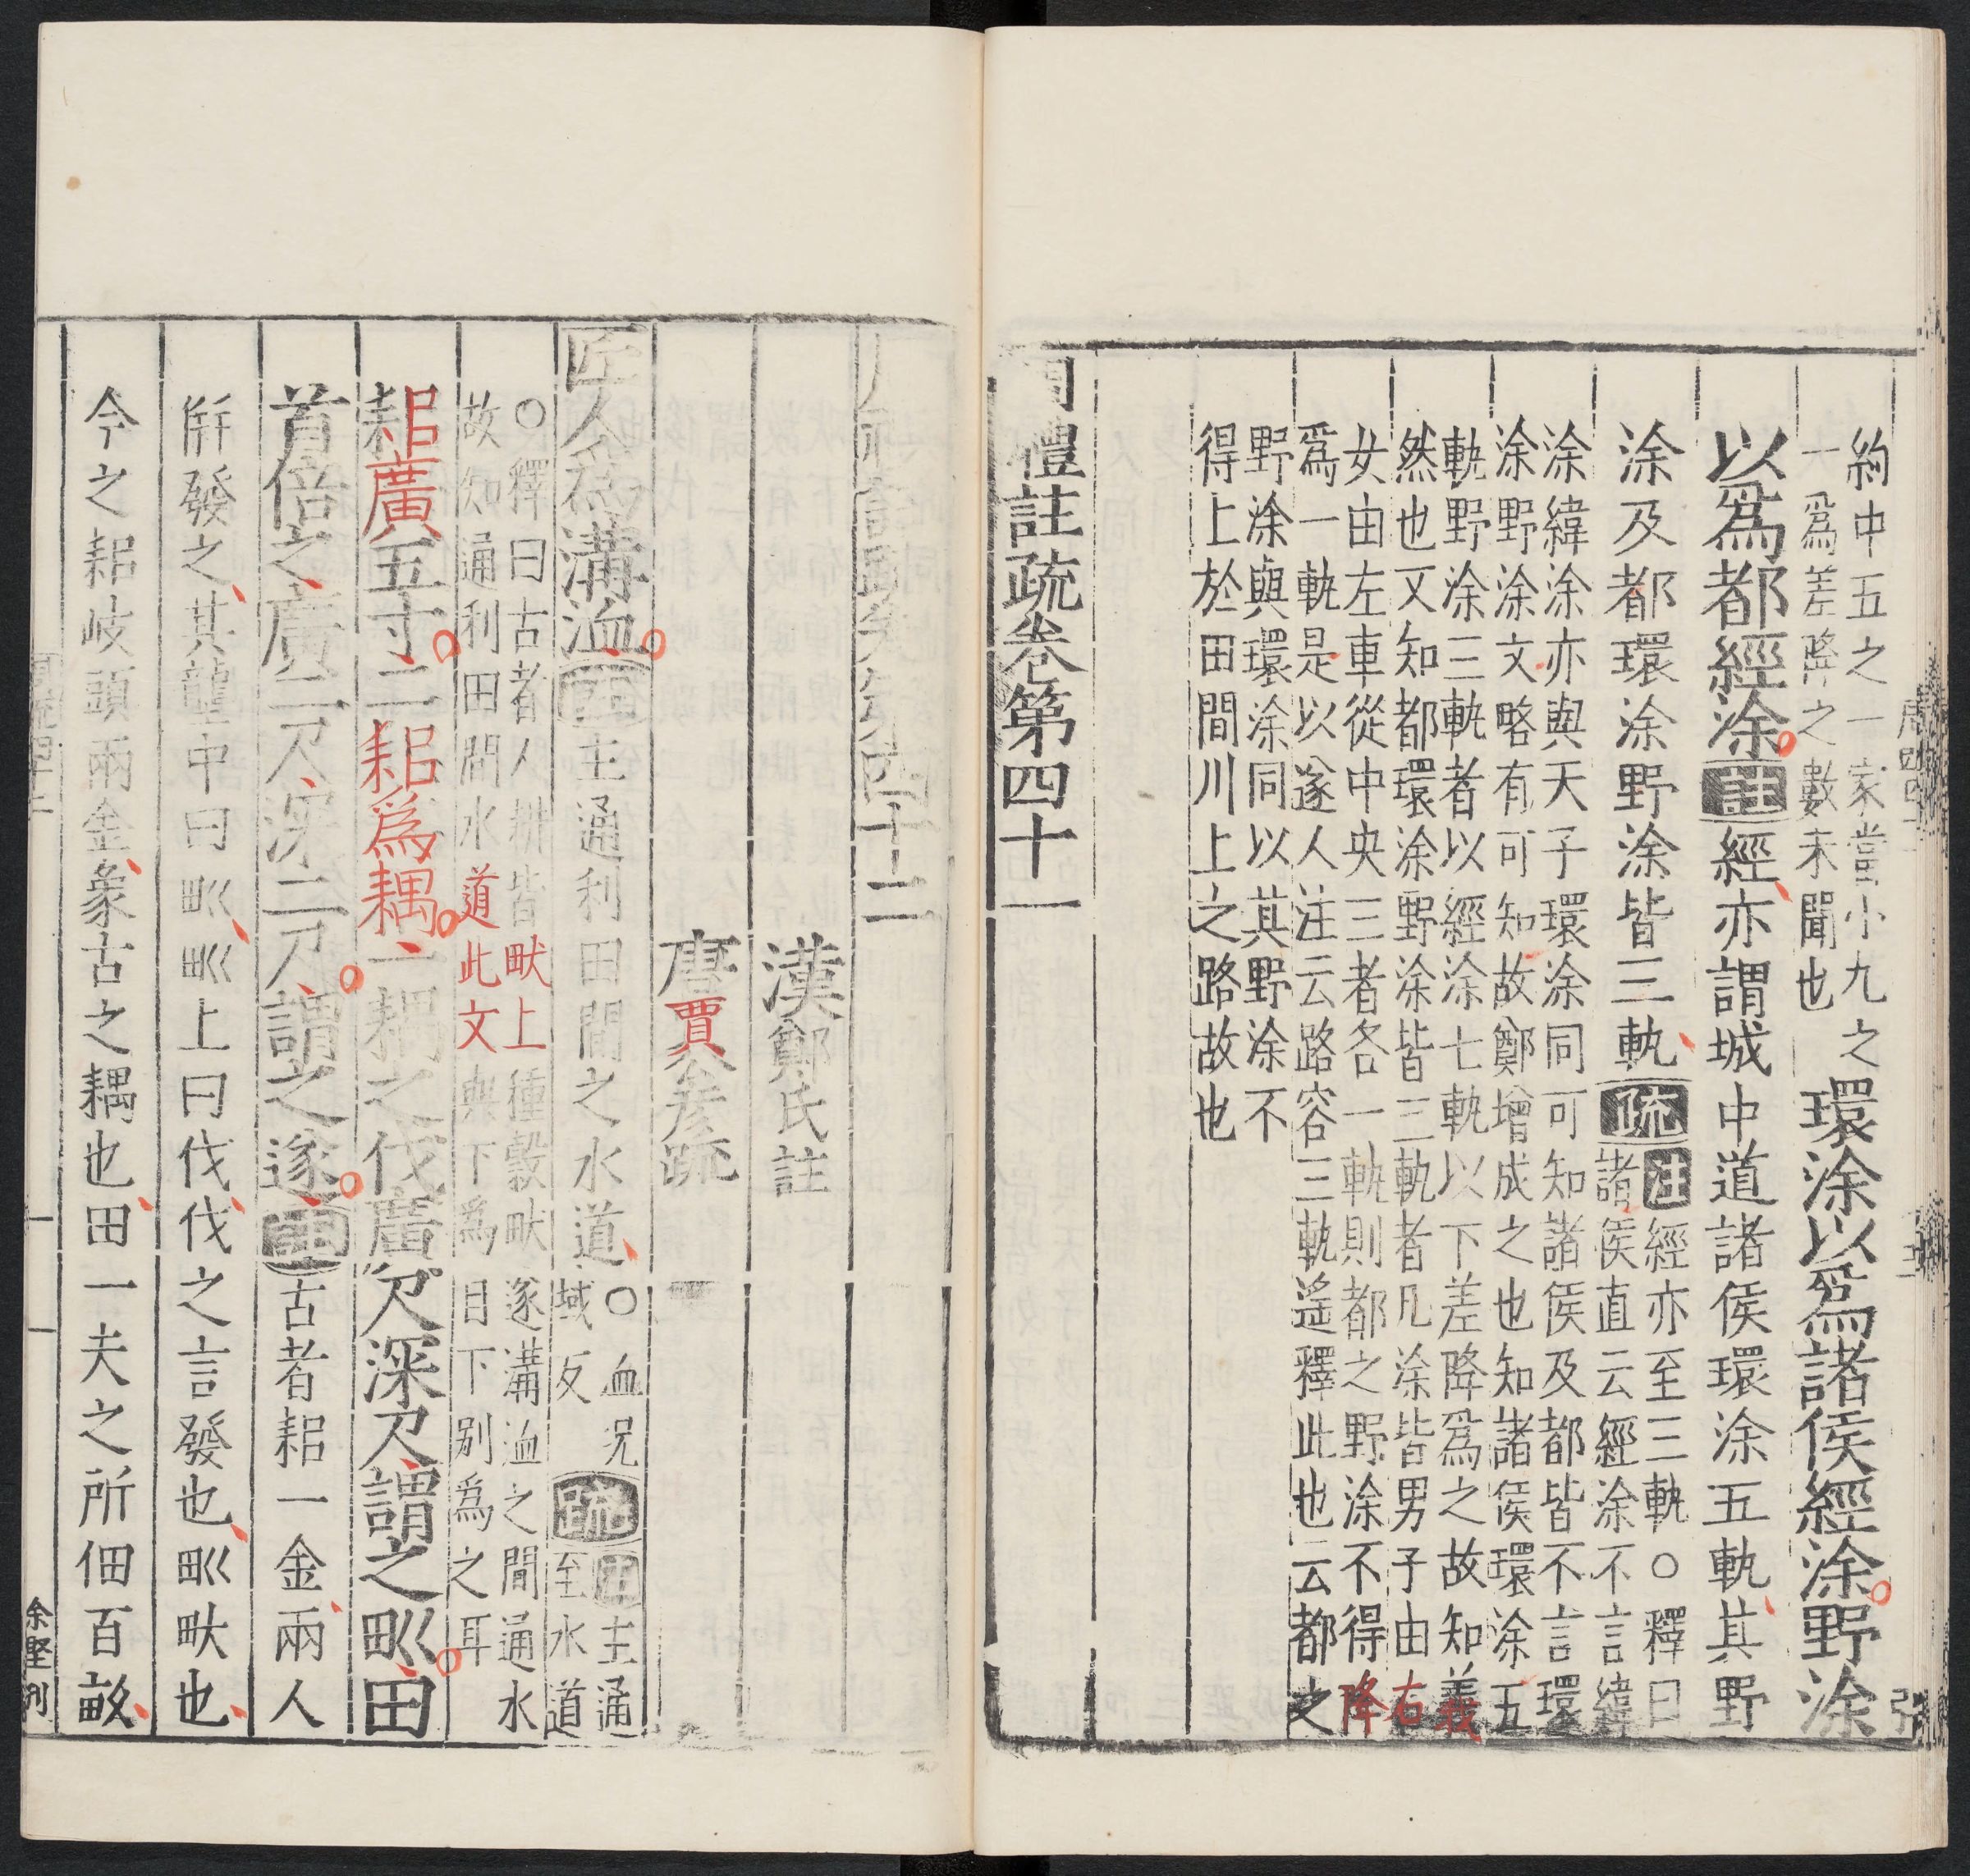 約中五之一家當小九之
一爲差降之數未聞也
環涂以爲諸侯經涂野涂
以爲都經涂註經亦謂城中道諸侯環涂五軌其野
涂及都環涂野涂皆三軌疏
注經亦至三軌○釋曰
諸侯直云經涂不言緯
涂緯涂亦與天子環涂同可知諸侯及都皆不言環
涂野涂文略有可知故鄭增成之也知諸侯環涂五
軌野涂三軌者以經涂七軌以下差降爲之故知義
然也又知都環涂野涂皆三軌者凡涂皆男子由右
女由左車從中央三者各一軌則都之野涂不得降
爲一軌是以遂人注云路容三軌遙釋此也云都之
野涂與環涂同以其野涂不
得上於田間川上之路故也
周禮註疏卷第四十一
周禮註疏卷第四十二
漢鄭氏註
唐賈公彥疏
匠人爲溝洫註主通利田間之水道
○洫況
域反
疏
注主通
至水道
○釋曰古者人耕皆畎上種穀畎遂溝洫之間通水
故知通利田間水道此文與下爲目下別爲之耳
耜廣五寸二耜爲耦一耦之伐廣尺深尺謂之𤰕田
首倍之廣二尺深二尺謂之遂註古者耜一金兩人
倂發之其壟中曰𤰕𤰕上曰伐伐之言發也𤰕畎也
今之耜岐頭兩金象古之耦也田一夫之所佃百畝
余堅刊